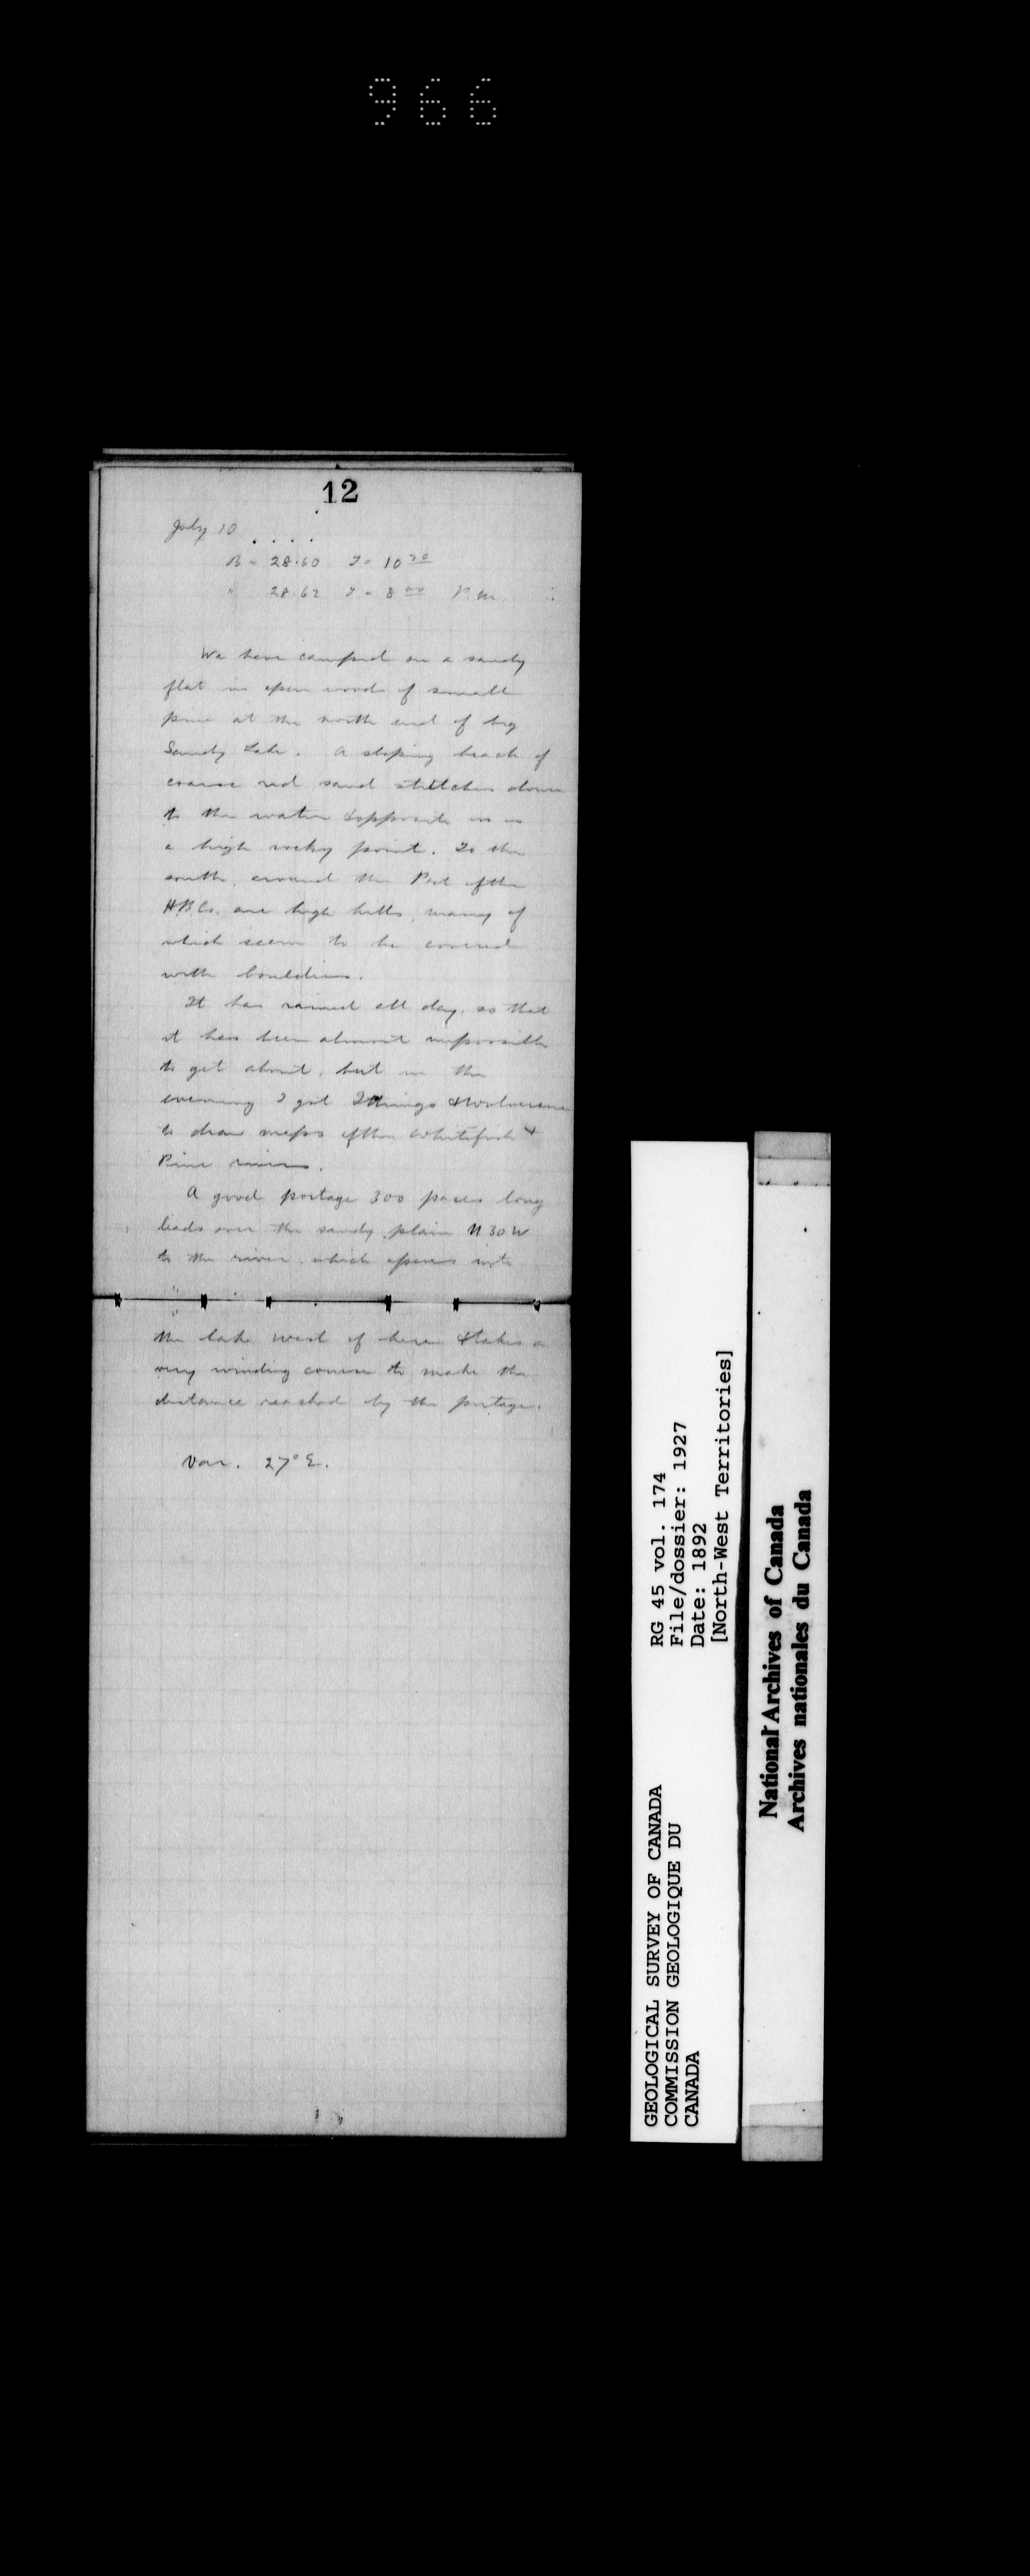 966
12
July 10
B = 28.60 T = 10 30
" 28.62 T = 8 00 P.M.
We have camped on a sandy
flat in open woods of small
pine at the north end of big
Sandy Lake. A sloping beach of
coarse red sand stretches down
to the water & opposite us is
a high rocky point. To the
south, around the Post of the
H.B.Co. are high hills, many of
which seem to be covered
with boulders.
It has rained all day, so that
it has been almost impossible
to get about, but in the
evening I got
to draw maps of the Whitefish &
Pine rivers.
A good portage 300 paces long
leads over the sandy plain N 30 W
to the river, which opens into
the lake west of here & takes a
very winding course to make the
distance reached by the portage.
Var. 27° E.
GEOLOGICAL SURVEY OF CANADA
COMMISSION GEOLOGIQUE DU
CANADA
RG 45 vol. 174
File/dossier: 1927
Date: 1892
[North-West Territories]
National Archives of Canada
Archives nationales du Canada